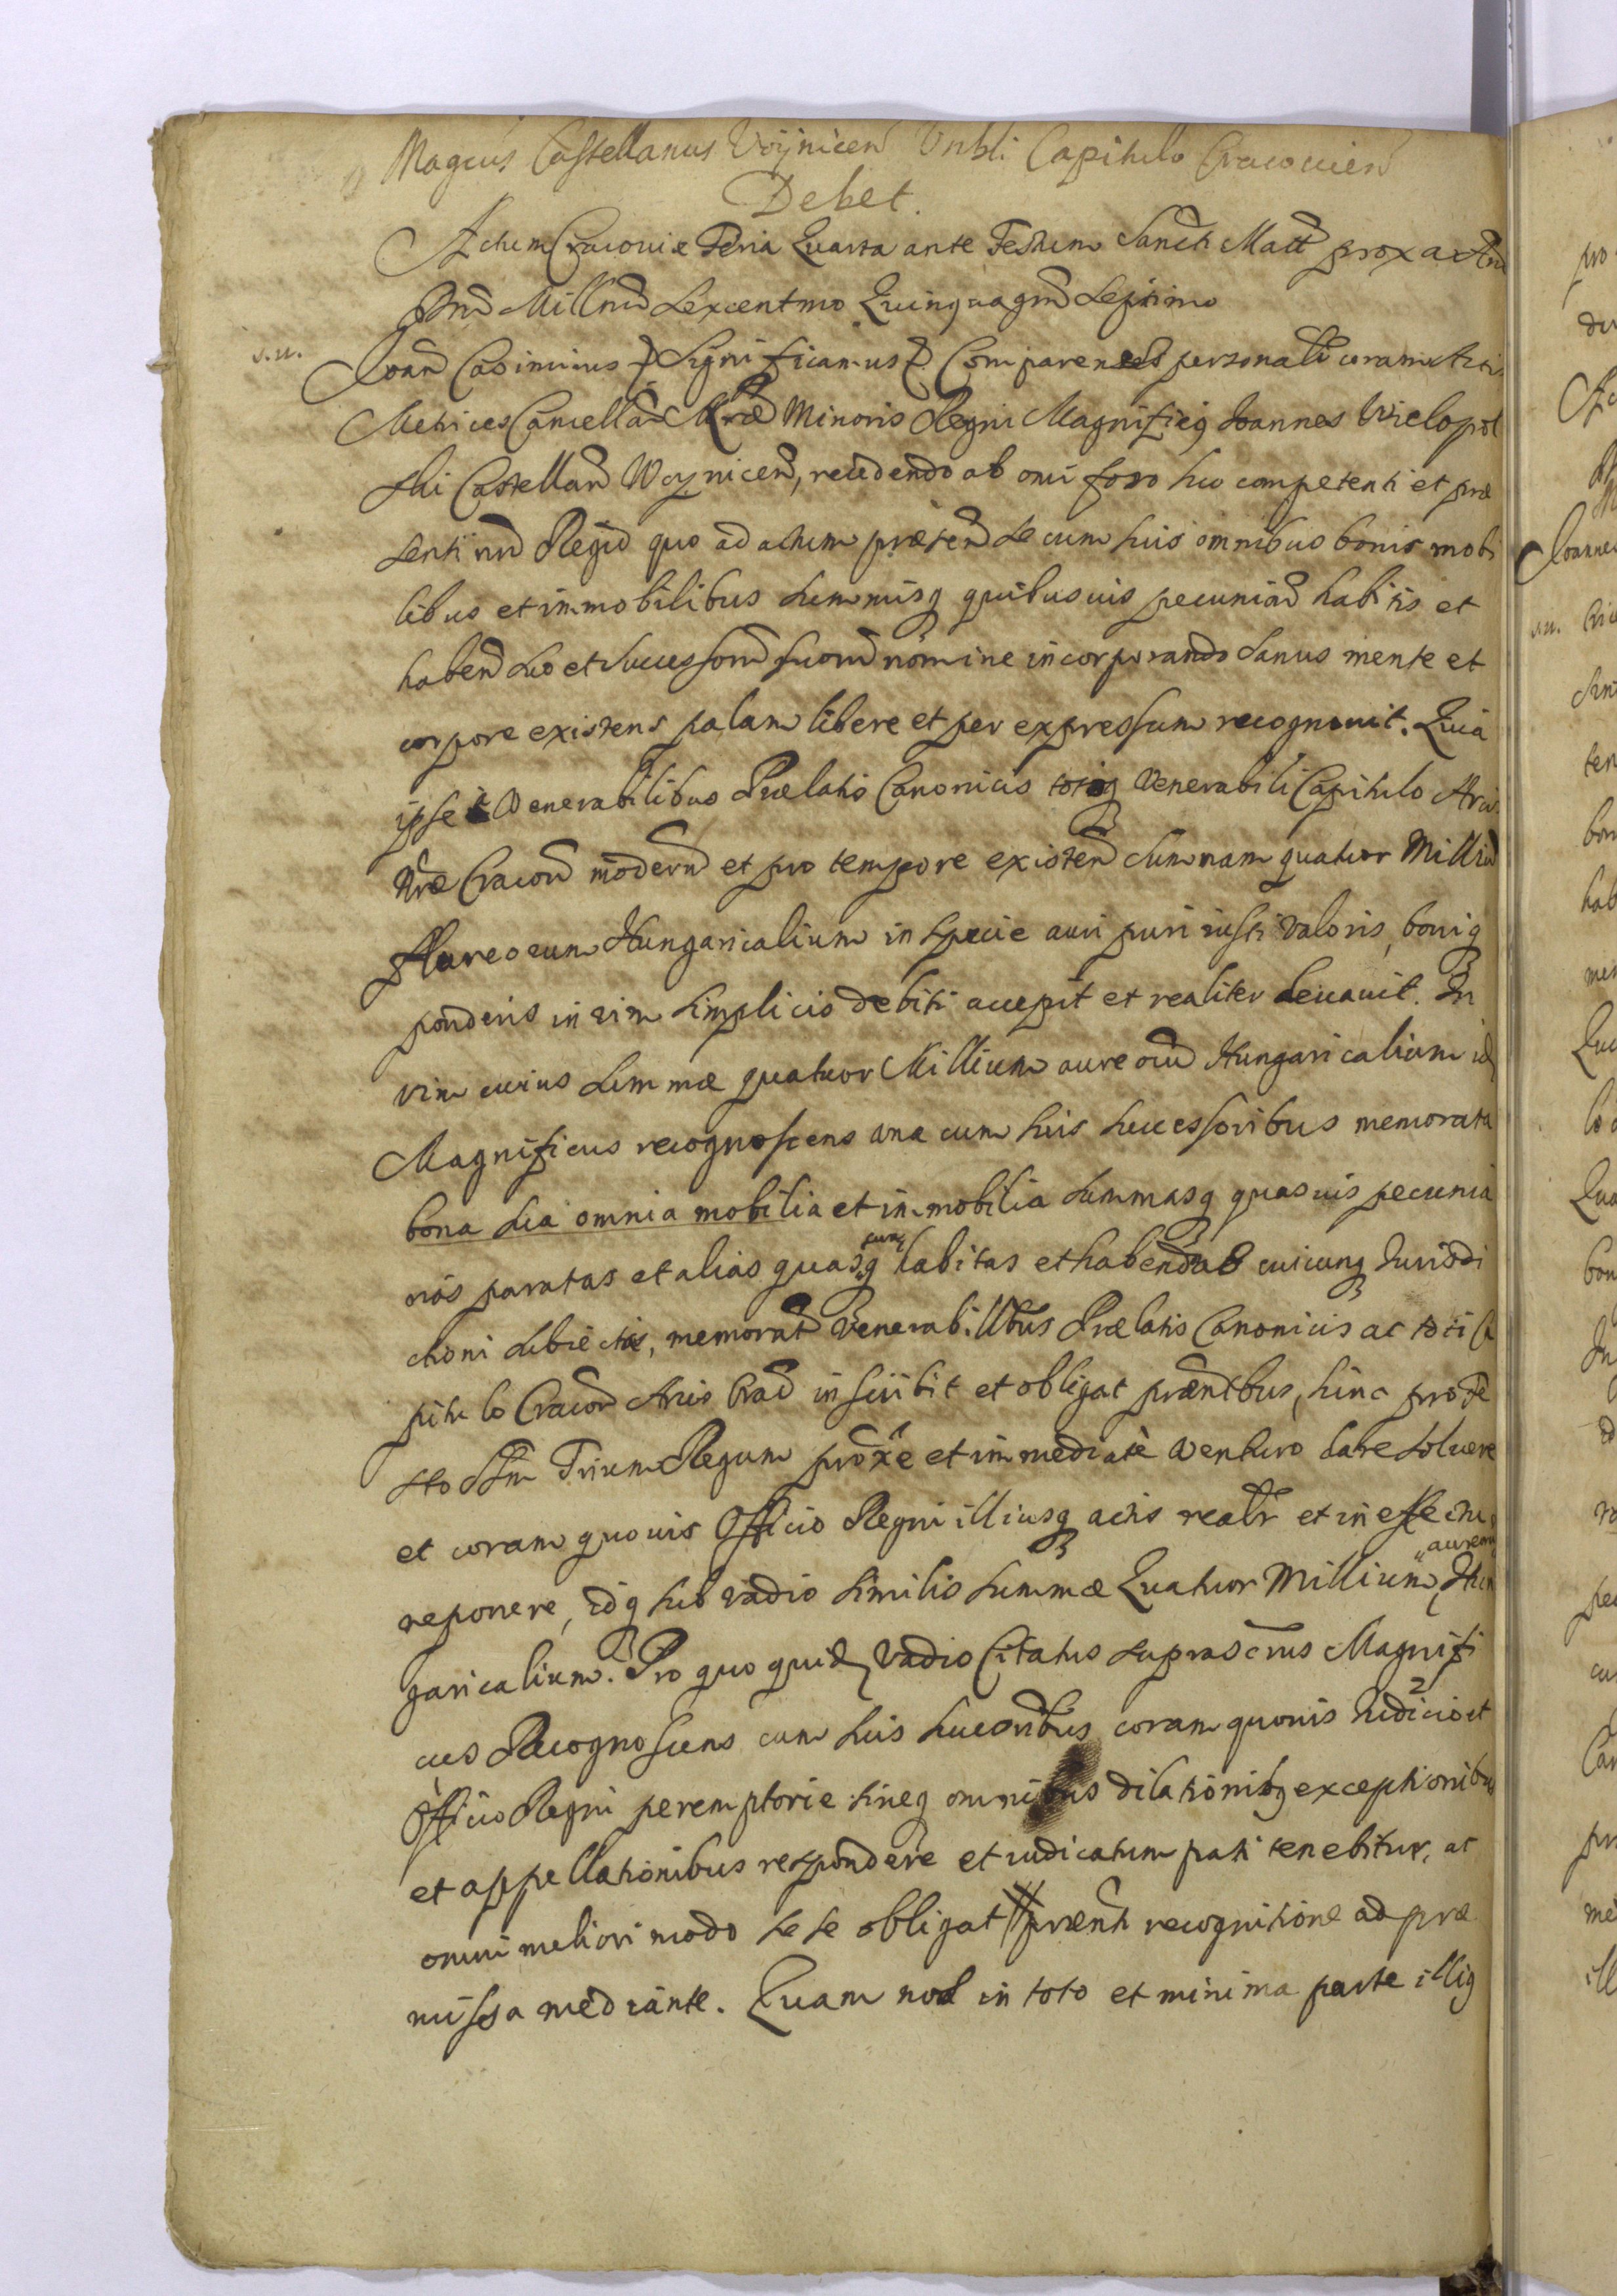 Magcus Castellanus Voÿnicen Vnbli Capitulo Cracouien
Debet.
Actum Cracouiæ Feria Quarta ante Festum Sancti Matt prox a
Dni Millmo Sexcentmo Quinquagmo Septimo
v.u. Joan Casimirus Significamus Comparens personalr coram Actis
Metrices Cancellar Mræ Minoris Regni Magnificq Joannes Wielopol
ski Castellan Woynicen, recedendo ab omi foro suo competenti et præ
senti nro Regio quo ad actum præsen se cum suis omnibus bonis mobi
libus et immobilibus summisq quibusuis pecuniar habitis et
haben suo et successorum suorum nomine incorporando sanus mente et
corpore existens palam libere et per expressum recognouit. Quia
ipse Venerabilibus Prælatis Canonicis totiq Venerabili Capitulo Arcis
Nræ Cracou modern et pro tempore existen summam quatuor Millium
Aureorum Hungaricalium in specie auri puri iusti valoris, boniq
ponderis in vim simplicis debiti accepit et realiter leuauit. In
vim cuius summæ quatuor Millium aureorum Hungaricalium id
Magnificus recognoscens una cum suis successoribus memorata
bona sua omnia mobilia et immobilia summasq quasuis pecunia
rias paratas et alias quascunq habitas et habendas cuicunq Jurisdi
ctioni subiectas, memorat Venerabilibus Prælatis Canonicis ac toti Ca
pitulo Cracou Arcis Crac inscribit et obligat præntbus, hinc pro fe
sto SSm Trium Regum proxe et immediate venturo dare soluere
et coram quouis Officio Regni illiusq actis realr et in effectu
reponere, idq sub vadio similis summæ Quatuor Millium aureorum Hun
garicalium. Pro quo quidem vadio Citatus suprascrus Magnifi
cus Recognoscens cum suis succoribus coram quouis Judicio et
Officio Regni peremptorie sineq omnibus dilationibq exceptionibus
et appellationibus respondere et iudicatum pati tenebitur, ac
omni meliori modo sese obligat prænti recognitione ad præ
missa mediante. Quam nos in toto et minima parte illiq